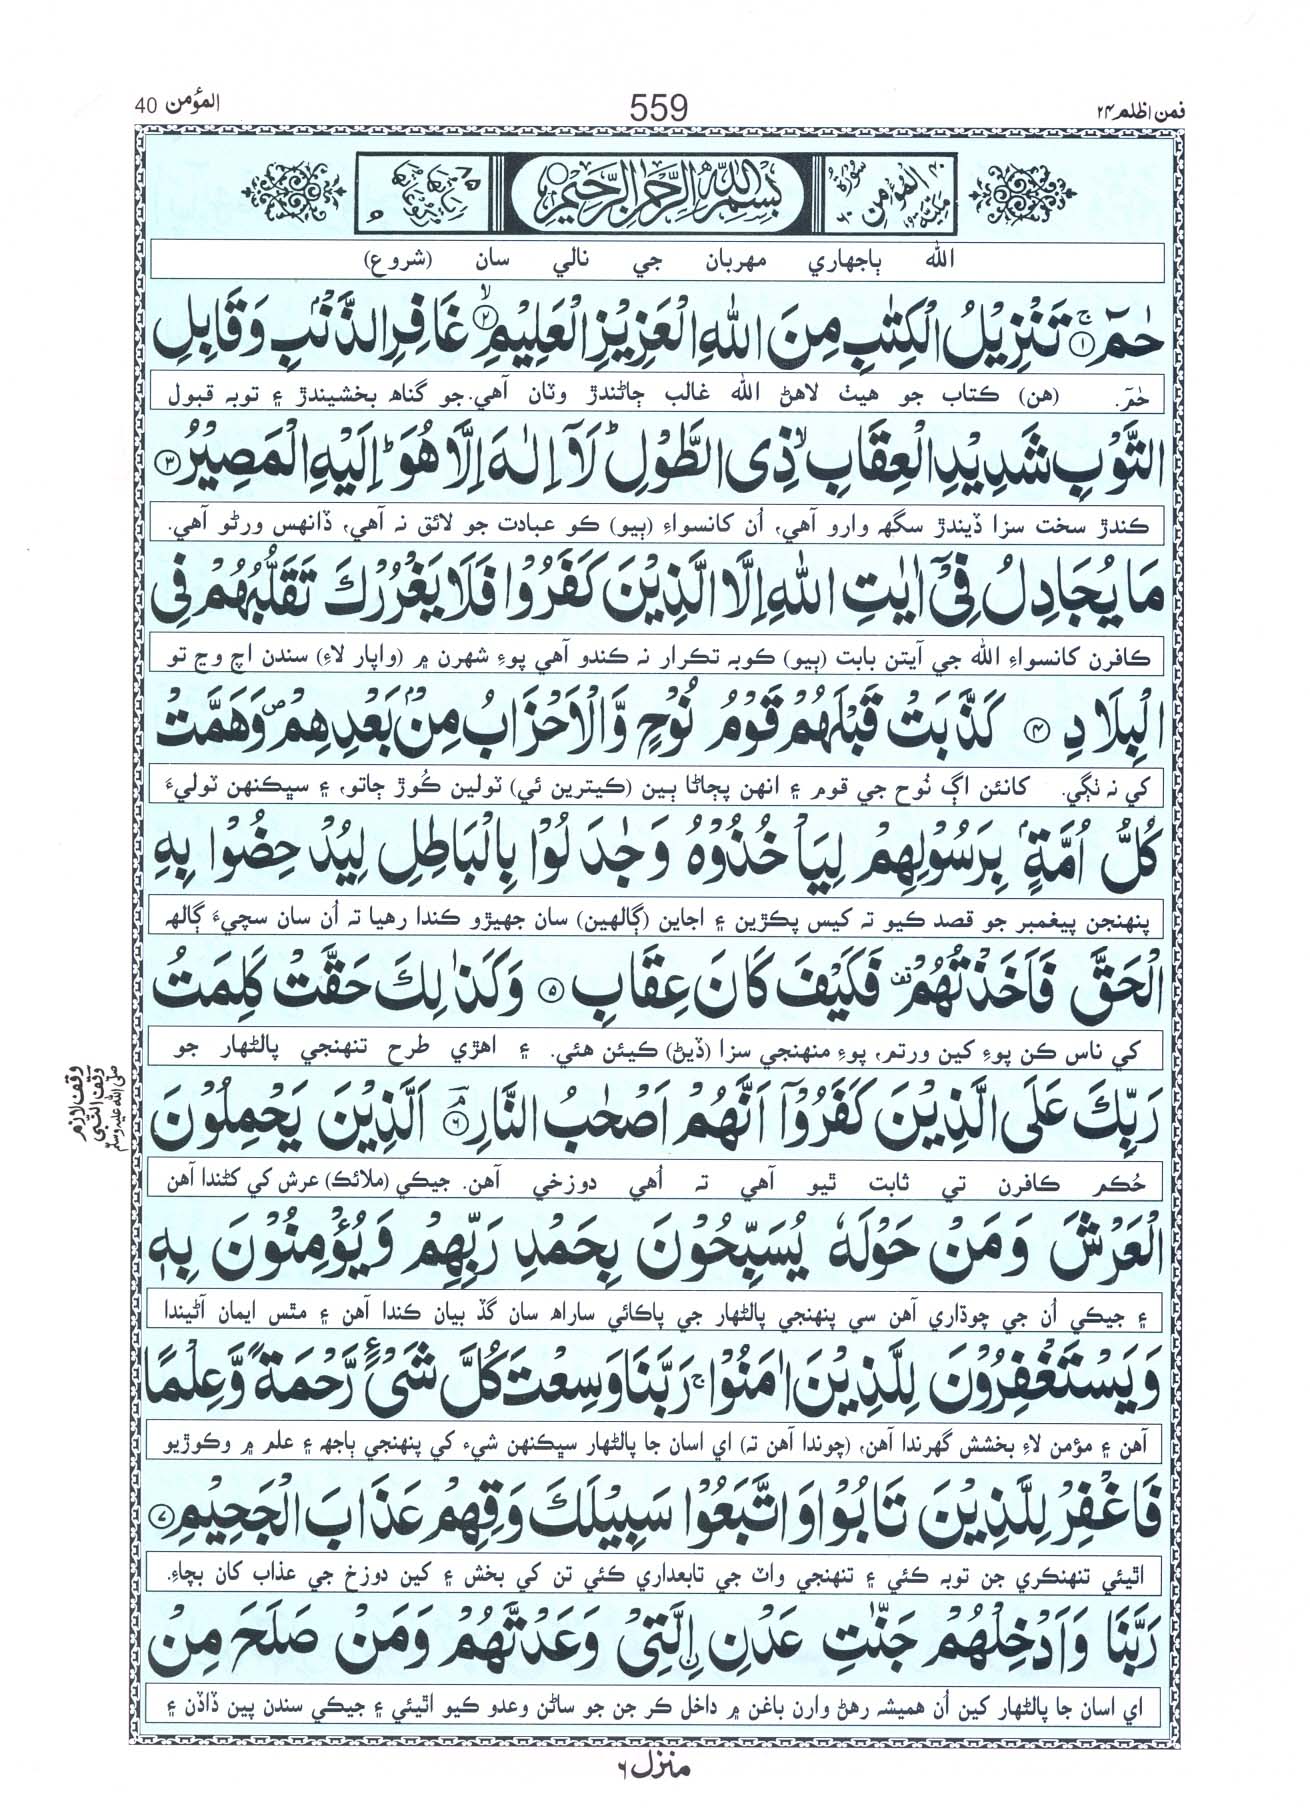 فمن اظلم ۲۴
559
المؤمن 40
سورة المؤمن مكية
بِسْمِ اللهِ الرَّحْمٰنِ الرَّحِيْمِ
الله ٻاجهاري مهربان جي نالي سان (شروع)
حٰمٓ ۚ‏﴿۱﴾ تَنْزِيْلُ الْكِتٰبِ مِنَ اللهِ الْعَزِيْزِ الْعَلِيْمِ ۙ‏﴿۲﴾ غَافِرِ الذَّنْۢبِ وَقَابِلِ
حٰمٓ. (هن) ڪتاب جو هيٺ لاهڻ الله غالب ڄاڻندڙ وٽان آهي. جو گناهہ بخشيندڙ ۽ توبہ قبول
التَّوْبِ شَدِيْدِ الْعِقَابِ ۙ ذِى الطَّوْلِ ؕ لَآ اِلٰهَ اِلَّا هُوَ ؕ اِلَيْهِ الْمَصِيْرُ ﴿۳﴾
ڪندڙ سخت سزا ڏيندڙ سگهہ وارو آهي، اُن کانسواءِ (ٻيو) ڪو عبادت جو لائق نہ آهي، ڏانهس ورڻو آهي.
مَا يُجَادِلُ فِىْٓ اٰيٰتِ اللهِ اِلَّا الَّذِيْنَ كَفَرُوْا فَلَا يَغْرُرْكَ تَقَلُّبُهُمْ فِى
ڪافرن کانسواءِ الله جي آيتن بابت (ٻيو) ڪوبہ تڪرار نہ ڪندو آهي پوءِ شهرن ۾ (واپار لاءِ) سندن اچ وڃ تو
الْبِلَادِ ﴿۴﴾ كَذَّبَتْ قَبْلَهُمْ قَوْمُ نُوْحٍ وَّالْاَحْزَابُ مِنْۢ بَعْدِهِمْ ۪ وَهَمَّتْ
کي نہ ٺڳي. کانئن اڳ نُوح جي قوم ۽ انهن پڄاڻا ٻين (ڪيترين ئي) ٽولين ڪُوڙ ڄاتو، ۽ سڀڪنهن ٽوليءَ
كُلُّ اُمَّةٍۭ بِرَسُوْلِهِمْ لِيَاْخُذُوْهُ وَجٰدَلُوْا بِالْبَاطِلِ لِيُدْحِضُوْا بِهِ
پنهنجن پيغمبر جو قصد ڪيو تہ کيس پڪڙين ۽ اجاين (ڳالهين) سان جهيڙو ڪندا رهيا تہ اُن سان سچيءَ ڳالهہ
الْحَقَّ فَاَخَذْتُهُمْ ۟ فَكَيْفَ كَانَ عِقَابِ ﴿۵﴾ وَكَذٰلِكَ حَقَّتْ كَلِمَتُ
کي ناس ڪن پوءِ کين ورتم، پوءِ منهنجي سزا (ڏيڻ) ڪيئن هئي. ۽ اهڙي طرح تنهنجي پالڻهار جو
رَبِّكَ عَلَى الَّذِيْنَ كَفَرُوْٓا اَنَّهُمْ اَصْحٰبُ النَّارِ ۘ‏﴿۶﴾ اَلَّذِيْنَ يَحْمِلُوْنَ
وقف لازم
وقف النبى
صلى الله عليه وسلم
حُڪم ڪافرن تي ثابت ٿيو آهي تہ اُهي دوزخي آهن. جيڪي (ملائڪ) عرش کي کڻندا آهن
الْعَرْشَ وَمَنْ حَوْلَهٗ يُسَبِّحُوْنَ بِحَمْدِ رَبِّهِمْ وَيُؤْمِنُوْنَ بِهٖ
۽ جيڪي اُن جي چوڌاري آهن سي پنهنجي پالڻهار جي پاڪائي ساراهہ سان گڏ بيان ڪندا آهن ۽ مٿس ايمان آڻيندا
وَيَسْتَغْفِرُوْنَ لِلَّذِيْنَ اٰمَنُوْا ۚ رَبَّنَا وَسِعْتَ كُلَّ شَىْءٍ رَّحْمَةً وَّعِلْمًا
آهن ۽ مؤمن لاءِ بخشش گهرندا آهن، (چوندا آهن تہ) اي اسان جا پالڻهار سڀڪنهن شيءِ کي پنهنجي ٻاجهہ ۽ علم ۾ وڪوڙيو
فَاغْفِرْ لِلَّذِيْنَ تَابُوْا وَاتَّبَعُوْا سَبِيْلَكَ وَقِهِمْ عَذَابَ الْجَحِيْمِ ﴿۷﴾
اٿيئي تنهنڪري جن توبہ ڪئي ۽ تنهنجي واٽ جي تابعداري ڪئي تن کي بخش ۽ کين دوزخ جي عذاب کان بچاءِ.
رَبَّنَا وَاَدْخِلْهُمْ جَنّٰتِ عَدْنِ ۨ الَّتِىْ وَعَدْتَّهُمْ وَمَنْ صَلَحَ مِنْ
اي اسان جا پالڻهار کين اُن هميشہ رهڻ وارن باغن ۾ داخل ڪر جن جو ساڻن وعدو ڪيو اٿيئي ۽ جيڪي سندن پين ڏاڏن ۽
منزل ۶